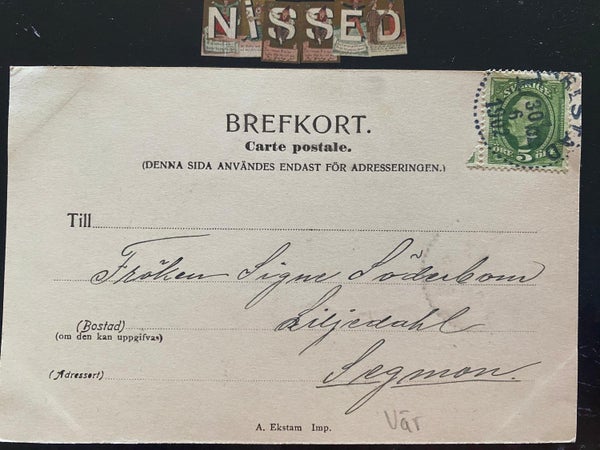 NiSSED
BREFKORT.
Carte postale.
(DENNA SIDA ANVÄNDES ENDAST FÖR ADRESSERINGEN.)
5
30
Till
Fröken Signe Söderbom
(Bostad)
(om den kan uppgifvas)
Liljedahl
(Adressort)
Segmon.
A. Ekstam Imp.
Vär